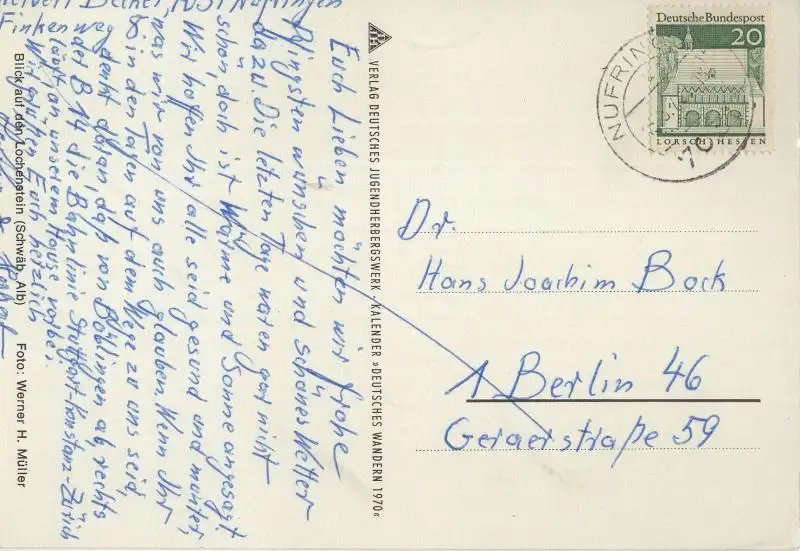 Euch Lieben möchten wir frohe
Pfingsten wünschen und schönes Wetter
dazu. Die letzten Tage waren gar nicht
schön, doch ist Wärme und Sonne angesagt.
Wir hoffen Ihr alle seid gesund und munter,
was wir von uns auch glauben. Wenn Ihr
in den Tagen auf dem Wege zu uns seid,
denkt daran, daß von Böblingen ab rechts
der B 14 die Bahnlinie Stuttgart-Konstanz-Zürich
läuft, an unserem Hause vorbei.
Wir grüßen Euch herzlich
Finkenweg
Nufringen
Blick auf den Lochenstein (Schwäb. Alb) Foto: Werner H. Müller
VERLAG DEUTSCHES JUGENDHERBERGSWERK - KALENDER »DEUTSCHES WANDERN 1970«
Deutsche Bundespost
20
LORSCH/HESSEN
NUFRING
Dr.
Hans Joachim Bock
1 Berlin 46
Geraerstraße 59